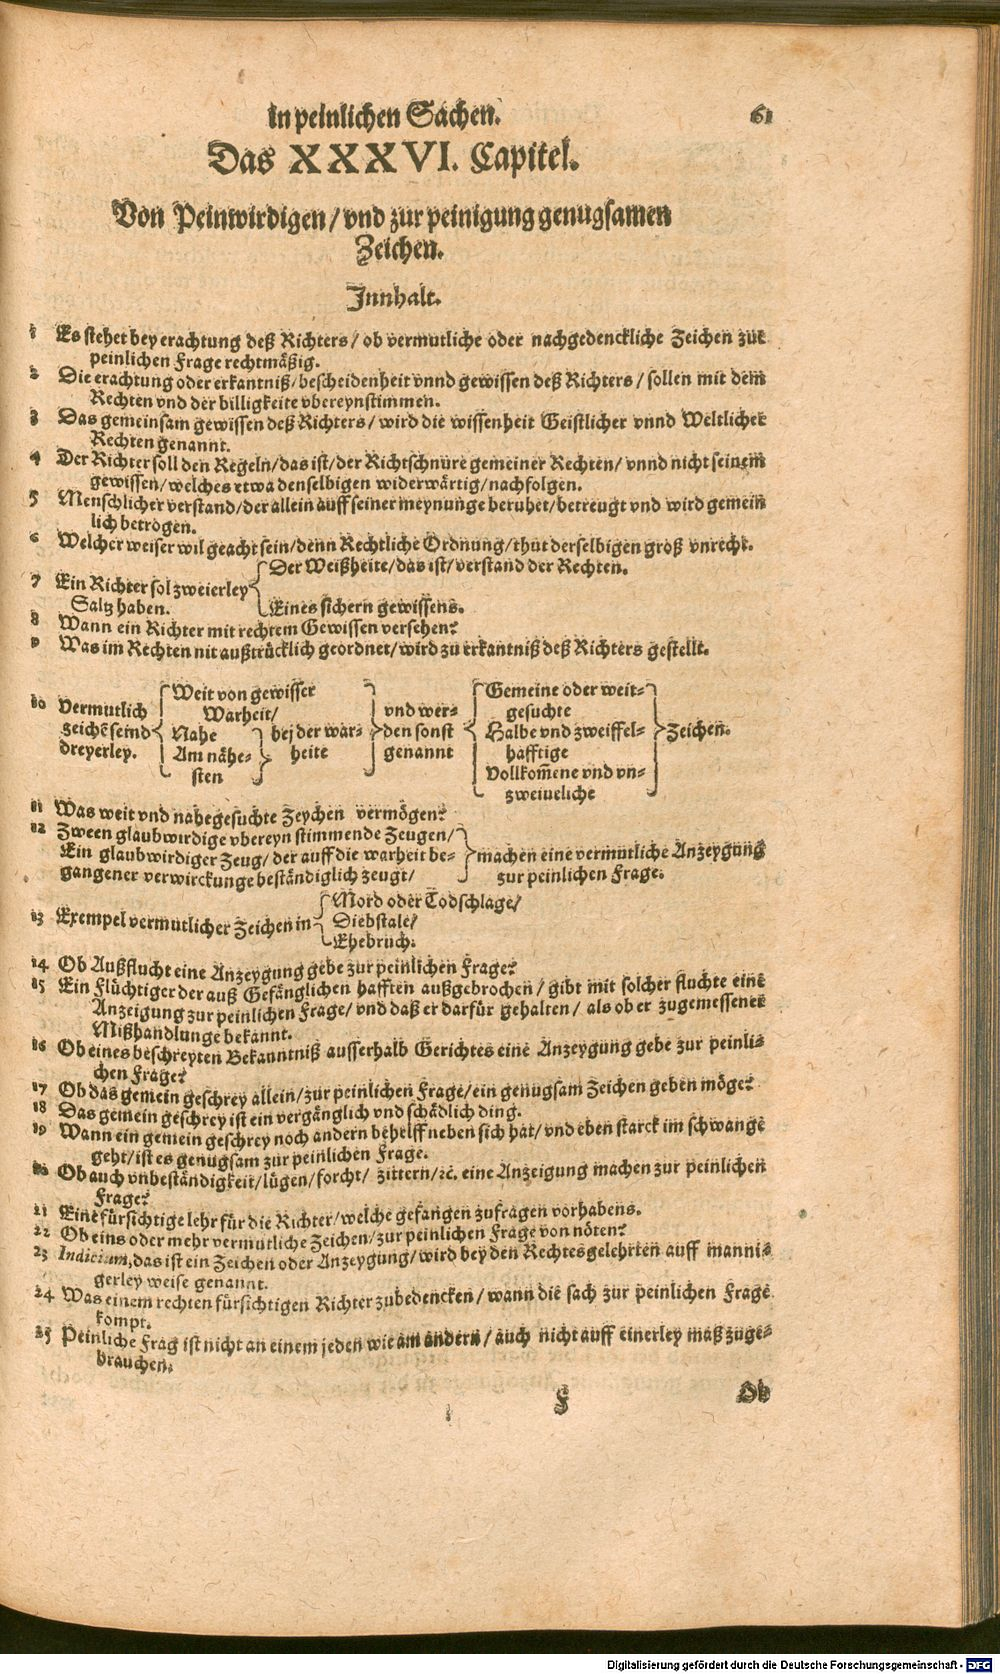 in peinlichen Sachen. 61
Das XXXVI. Capitel.
Von Peinwirdigen / vnd zur peinigung genugsamen
Zeichen.
Innhalt.
1 Es stehet bey erachtung deß Richters / ob vermutliche oder nachgedenckliche Zeichen zur
peinlichen Frage rechtmäßig.
2 Die erachtung oder erkantniß / bescheidenheit vnnd gewissen deß Richters / sollen mit dem
Rechten vnd der billigkeite vbereynstimmen.
3 Das gemeinsam gewissen deß Richters / wird die wissenheit Geistlicher vnnd Weltlicher
Rechten genannt.
4 Der Richter soll den Regeln / das ist / der Richtschnure gemeiner Rechten / vnnd nicht seinem
gewissen / welches etwa denselbigen widerwärtig / nachfolgen.
5 Menschlicher verstand / der allein auff seiner meynunge beruhet / betreugt vnd wird gemein
lich betrogen.
6 Welcher weiser wil geacht sein / denn Rechtliche Ordnung / thut derselbigen groß vnrecht.
7 Ein Richter sol zweierley
Saltz haben.
Der Weißheite / das ist / verstand der Rechten.
Eines sichern gewissens.
8 Wann ein Richter mit rechtem Gewissen versehen?
9 Was im Rechten nit außtrücklich geordnet / wird zu erkantniß deß Richters gestellt.
10 Vermutlich
zeichē seind
dreyerley.
Weit von gewisser
Warheit /
Nahe
Am nähe-
sten
bej der war-
heite
vnd wer-
den sonst
genannt
Gemeine oder weit-
gesuchte
Halbe vnd zweiffel-
hafftige
Vollkom̃ene vnd vn-
zweiueliche
Zeichen.
11 Was weit vnd nahegesuchte Zeychen vermögen?
12 Zween glaubwirdige vbereyn stimmende Zeugen /
Ein glaubwirdiger Zeug / der auff die warheit be-
gangener verwirckunge beständiglich zeugt /
machen eine vermutliche Anzeygung
zur peinlichen Frage.
13 Exempel vermutlicher Zeichen in
Mord oder Todschlage /
Diebstale /
Ehebruch.
14 Ob Außflucht eine Anzeygung gebe zur peinlichen Frage?
15 Ein Flüchtiger der auß Gefänglichen hafften außgebrochen / gibt mit solcher fluchte eine
Anzeigung zur peinlichen Frage / vnd daß er darfür gehalten / als ob er zugemessener
Mißhandlunge bekannt.
16 Ob eines beschreyten Bekanntniß ausserhalb Gerichtes eine Anzeygung gebe zur peinli-
chen Frage?
17 Ob das gemein geschrey allein / zur peinlichen Frage / ein genugsam Zeichen geben möge?
18 Das gemein geschrey ist ein vergänglich vnd schädlich ding.
19 Wann ein gemein geschrey noch andern behelff neben sich hat / vnd eben starck im schwange
geht / ist es genugsam zur peinlichen Frage.
20 Ob auch vnbeständigkeit / lügen / forcht / zittern / ꝛc. eine Anzeigung machen zur peinlichen
Frage?
21 Eine fürsichtige lehr für die Richter / welche gefangen zufragen vorhabens.
22 Ob eins oder mehr vermutliche Zeichen / zur peinlichen Frage von nöten?
23 Indicium, das ist ein Zeichen oder Anzeygung / wird bey den Rechtesgelehrten auff manni-
gerley weise genannt.
24 Was einem rechten fürsichtigen Richter zubedencken / wann die sach zur peinlichen Frage
kompt.
25 Peinliche Frag ist nicht an einem jeden wie am andern / auch nicht auff einerley maß zuge-
brauchen.
F Ob
Digitalisierung gefördert durch die Deutsche Forschungsgemeinschaft - DFG